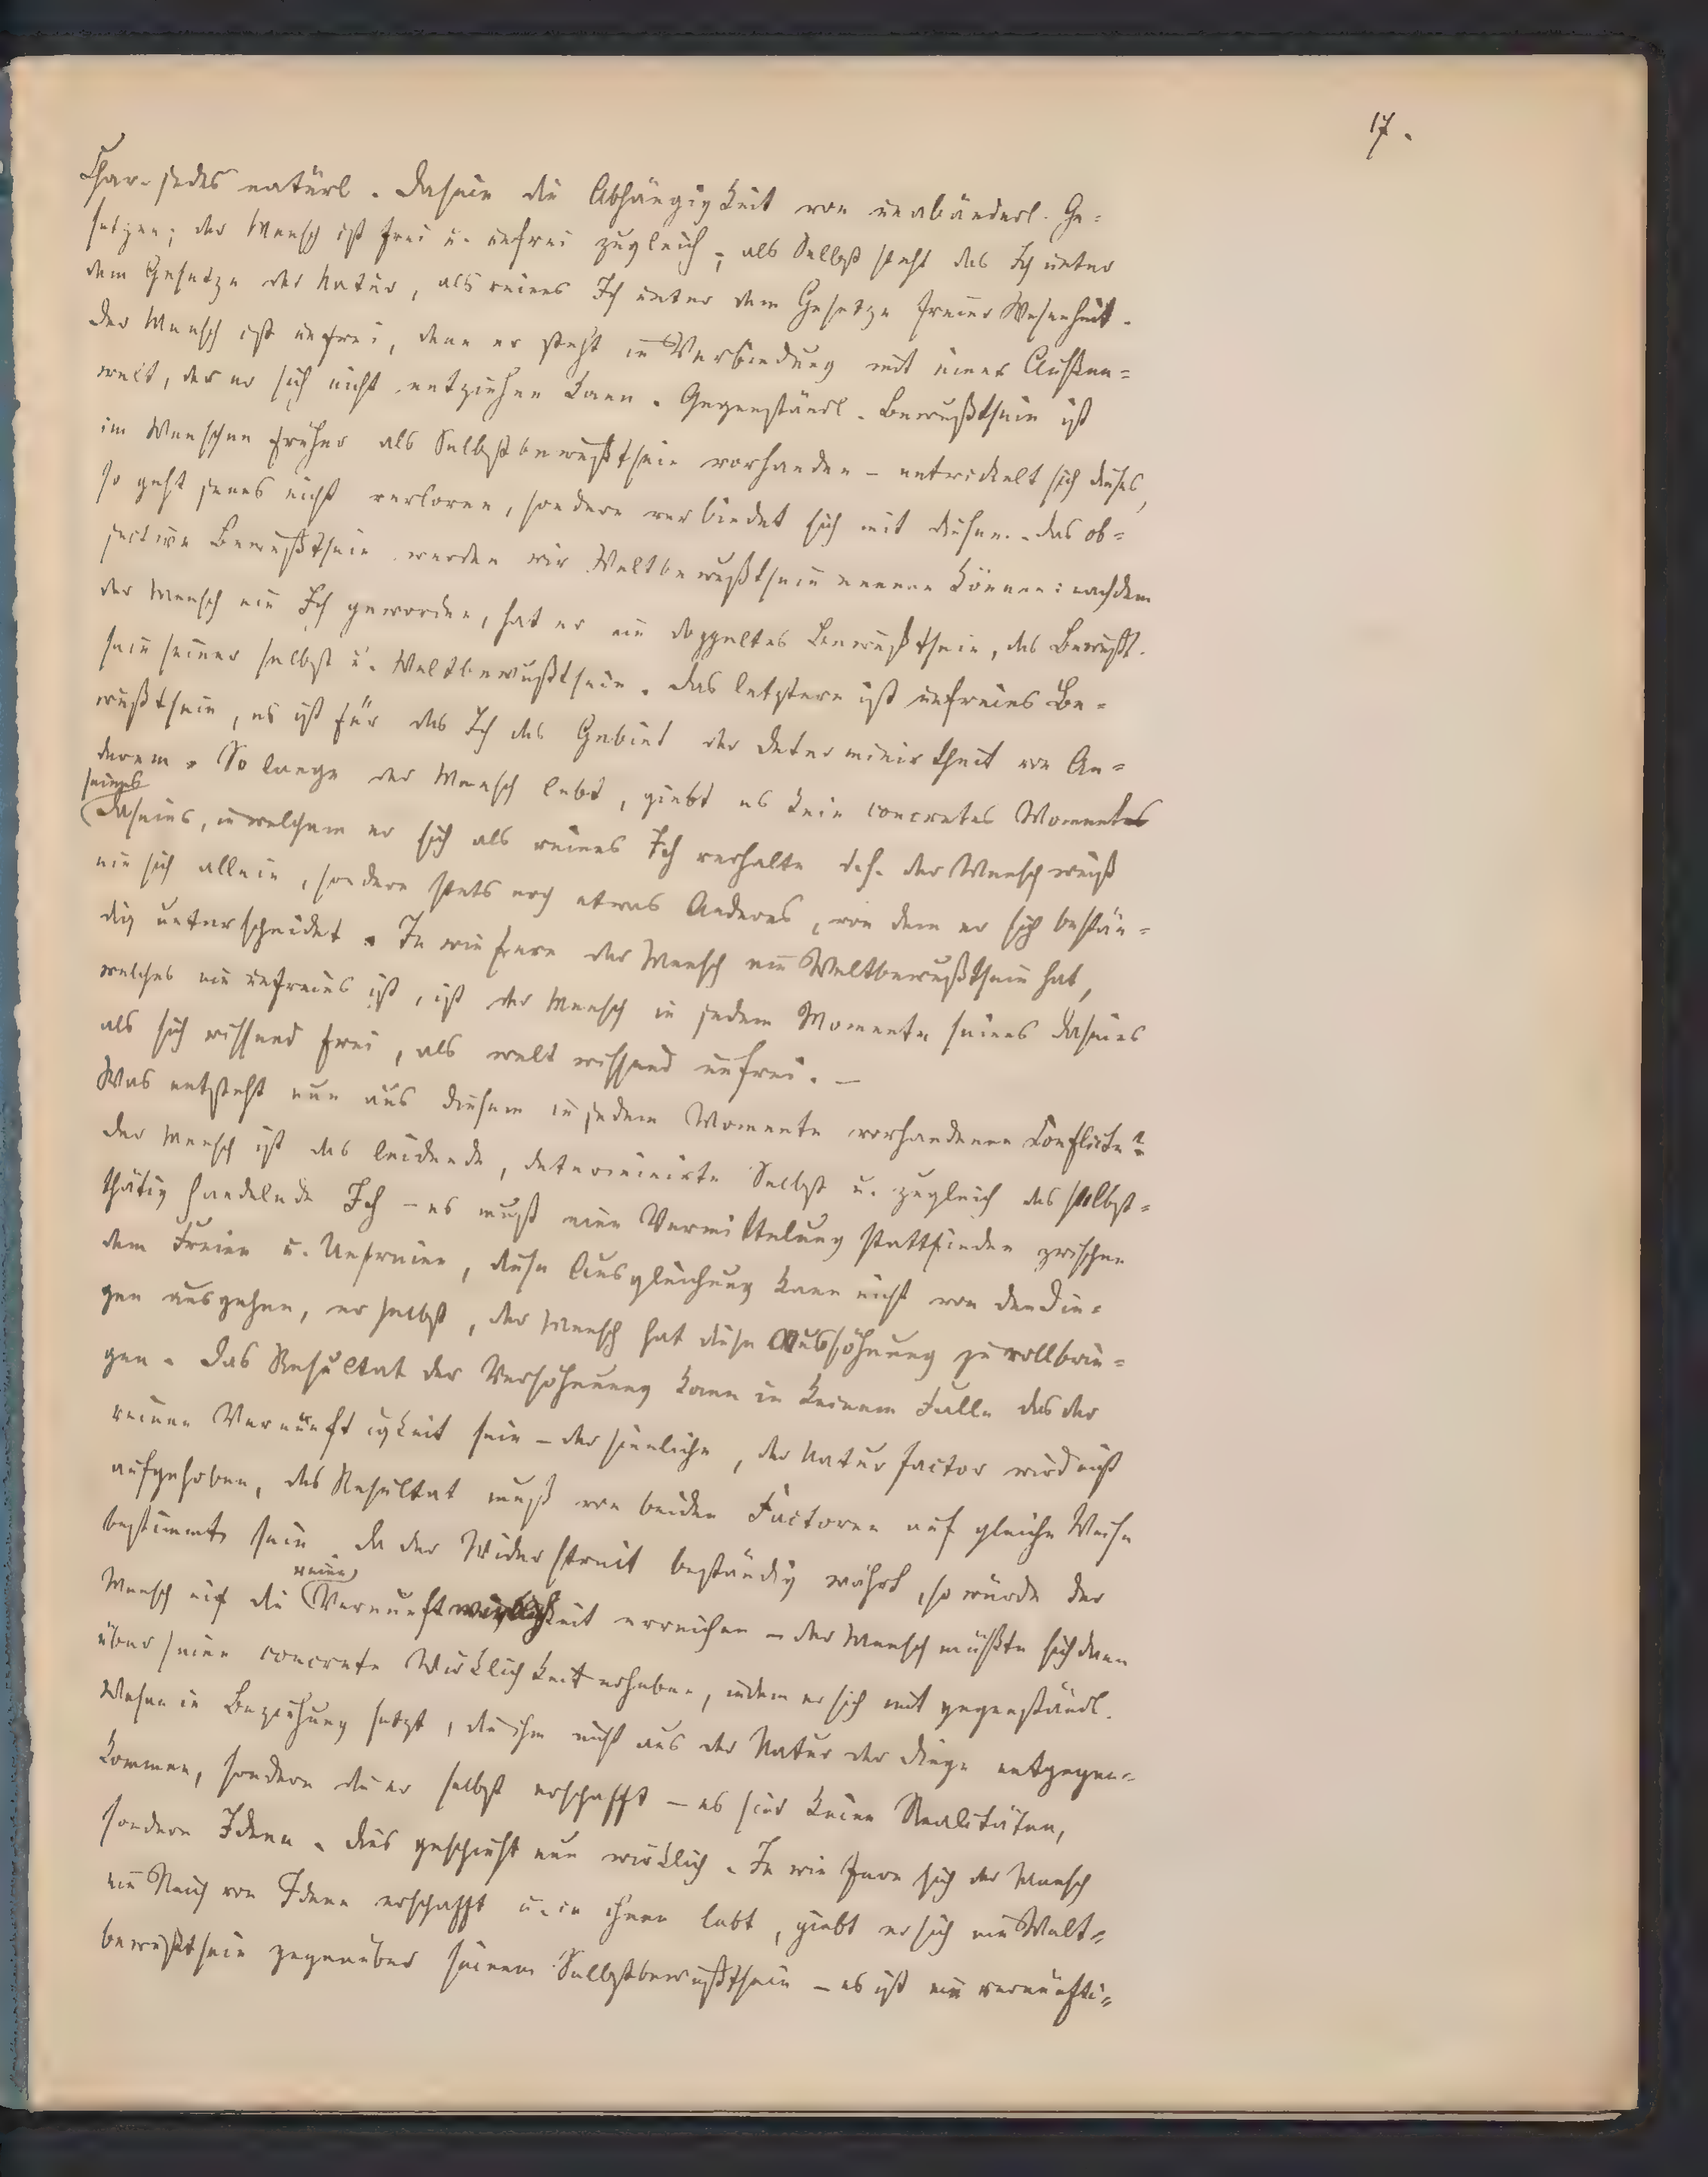 17.
Char. jedes natürl. Dasein die Abhängigkeit von unabänderl. Ge=
setzen; der Mensch ist frei u. unfrei zugleich; als Selbst steht das Ich unter
dem Gesetze der Natur, als reines Ich unter dem Gesetze freier Wesenheit.
Der Mensch ist unfrei, denn er steht in Verbindung mit einer Außen=
welt, der er sich nicht entziehen kann. Gegenständl. Bewußtsein ist
im Menschen früher als Selbstbewußtsein vorhanden – entwickelt sich dieses,
so geht jenes nicht verloren, sondern verbindet sich mit diesem. Das ob=
jective Bewußtsein werden wir Weltbewußtsein nennen können: nachdem
der Mensch ein Ich geworden, hat er ein doppeltes Bewußtsein, das Bewußt.
sein seiner selbst u. Weltbewußtsein. Das letztere ist unfreies Be=
wußtsein, es ist für das Ich das Gebiet der Determinirtheit von An=
derem. So lange der Mensch lebt, giebt es kein concretes Moment
seines
Daseins, in welchem er sich als reines Ich verhalte d.h. der Mensch weiß
nie sich allein, sondern stets noch etwas Anderes, von dem er sich bestän=
dig unterscheidet. In wie fern der Mensch ein Weltbewußtsein hat,
welches ein unfreies ist, ist der Mensch in jedem Momente seines Daseins
als sich wissend frei, als welt wissend unfrei. –
Was entsteht nun aus diesem in jedem Momente vorhandenen Conflicte?
Der Mensch ist das leidende, determinirte Selbst u. zugleich das selbst=
thätig handelnde Ich – es muß eine Vermittelung stattfinden zwischen
dem Freien u. Unfreien, diese Ausgleichung kann nicht von den Din=
gen ausgehen, er selbst, der Mensch hat diese Aussöhnung zu vollbrin=
gen. Das Resultat der Versöhnung kann in keinem Falle das der
reinen Vernünftigkeit sein – der sinnliche, der Natur factor wird nicht
aufgehoben, das Resultat muß von beiden Factoren auf gleiche Weise
bestimmt sein. Da der Widerstreit beständig währt, so würde der
reine
Mensch nie die Vernünftigkeit erreichen – der Mensch müßte sich denn
über seine concrete Wirklichkeit erheben, indem er sich mit gegenständl.
Wesen in Beziehung setzt, die ihm nicht aus der Natur der Dinge entgegen=
kommen, sondern die er selbst erschafft – es sind keine Realitäten,
sondern Ideen. Dies geschieht nun wirklich. In wie fern sich der Mensch
ein Reich von Ideen erschafft u. in ihnen lebt, giebt er sich ein Welt=
bewußtsein gegenüber seinem Selbstbewußtsein – es ist ein vernünfti=